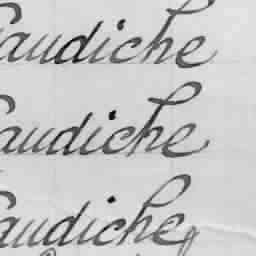 Gaudiche
Gaudiche
Gaudiche